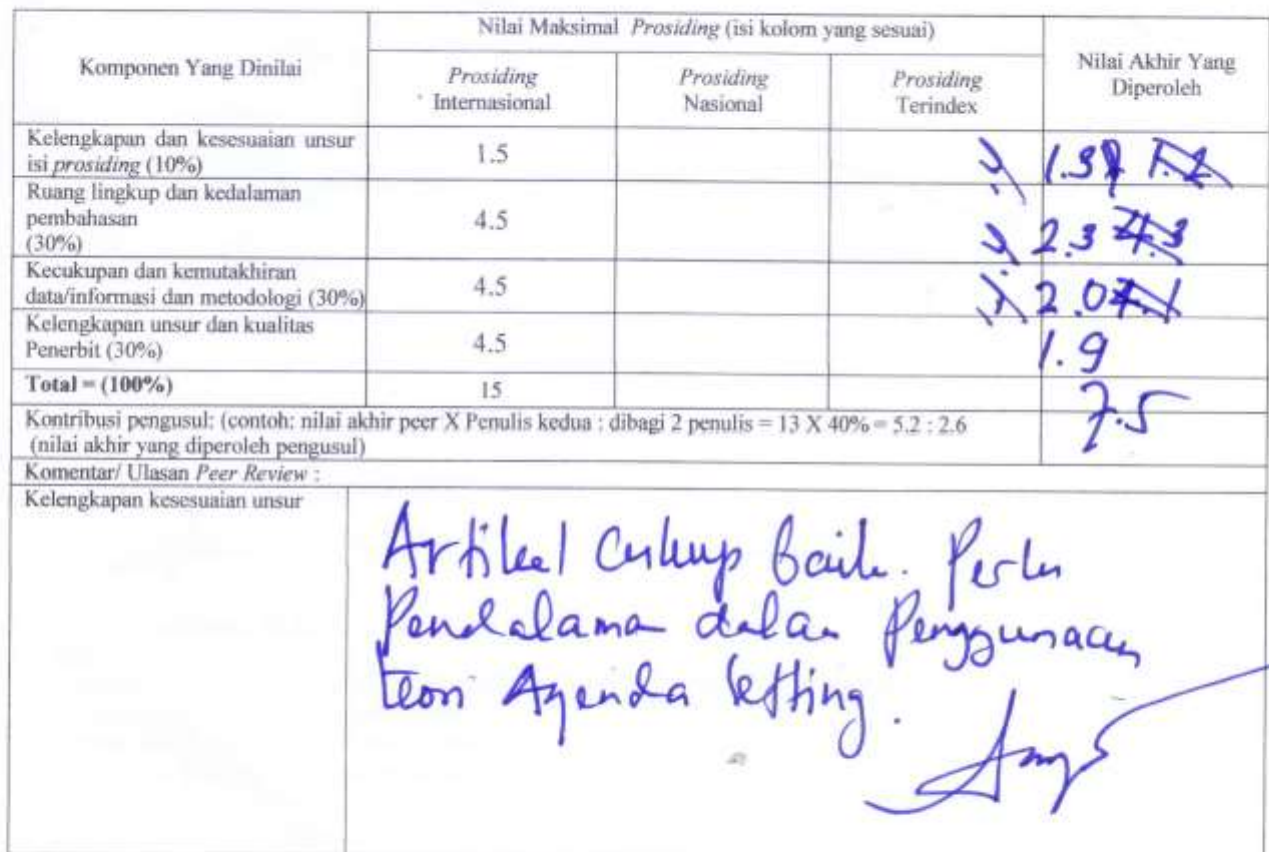 Komponen Yang Dinilai
Nilai Maksimal Prosiding (isi kolom yang sesuai)
Nilai Akhir Yang
Diperoleh
Prosiding
Internasional
Prosiding
Nasional
Prosiding
Terindex
Kelengkapan dan kesesuaian unsur
isi prosiding (10%)
1.5
1.3
1.2
Ruang lingkup dan kedalaman
pembahasan
(30%)
4.5
2.3
4.3
Kecukupan dan kemutakhiran
data/informasi dan metodologi (30%)
4.5
2.0
Kelengkapan unsur dan kualitas
Penerbit (30%)
4.5
1.9
Total = (100%)
15
7.5
Kontribusi pengusul: (contoh: nilai akhir peer X Penulis kedua : dibagi 2 penulis = 13 X 40% = 5.2 : 2.6
(nilai akhir yang diperoleh pengusul)
Komentar/ Ulasan Peer Review :
Kelengkapan kesesuaian unsur
Artikel Cukup baik. Perlu
Pendalaman dalam Penggunaan
teori Agenda Setting.